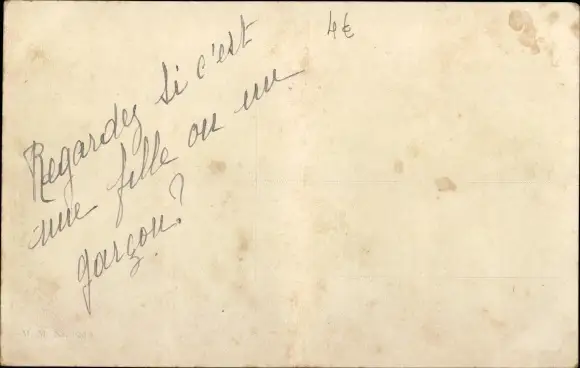 Regardez si c'est
une fille ou un
garçon?
4€